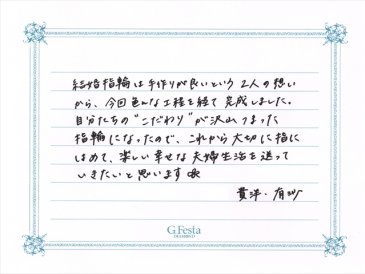 結婚指輪は手作りが良いという2人の想い
から、今回色んな工程を経て完成しました。
自分たちの"こだわり"が沢山つまった
指輪になったので、これから大切に指に
はめて、楽しい幸せな夫婦生活を送って
いきたいと思います
貴洋・有沙
G.Festa
DIAMOND